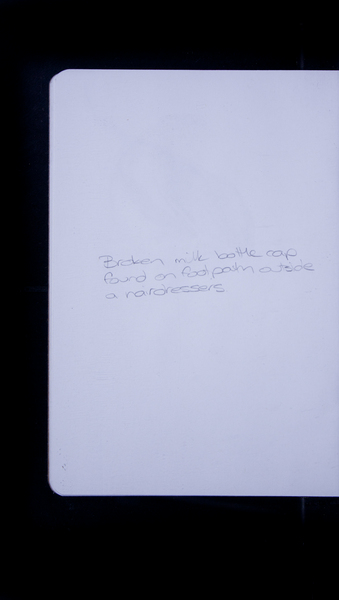 Broken milk bottle cap
found on footpath outside
a hairdressers